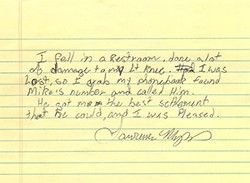 I fall in a Restroom, done a lot
of damage to my Lt Knee. I was
Lost, so I grab my phonebook found
Mike's number and called Him.
He got me the best settlement
that He could, and I was Pleased.
Lawrence